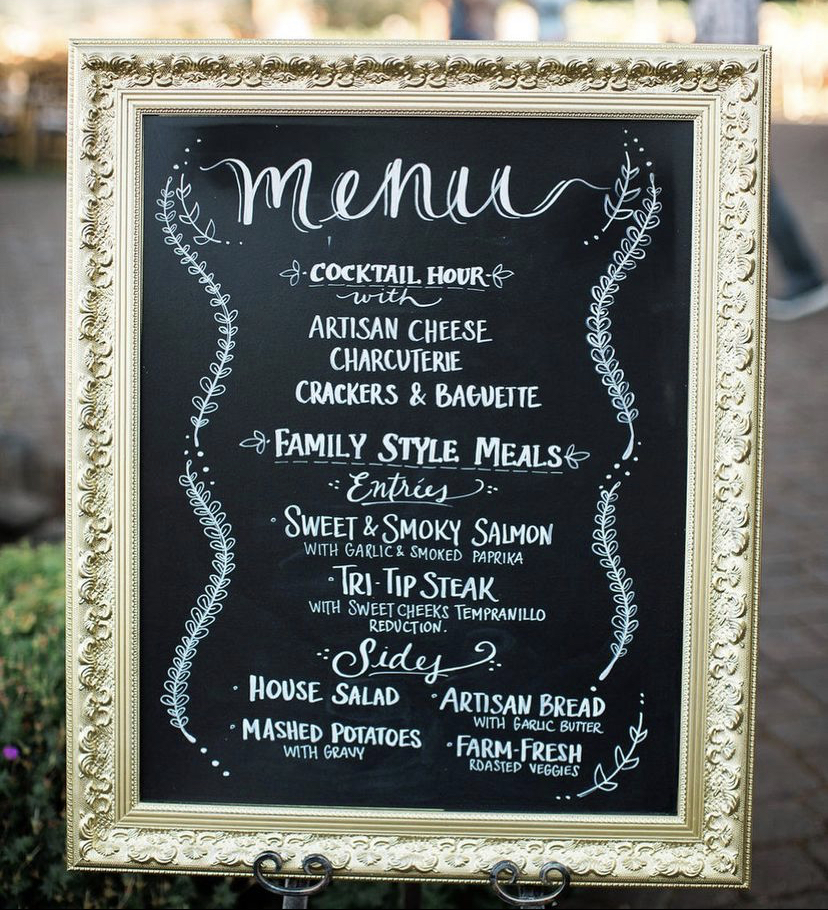 menu
COCKTAIL HOUR
with
ARTISAN CHEESE
CHARCUTERIE
CRACKERS & BAGUETTE
FAMILY STYLE MEALS
Entrées
SWEET & SMOKY SALMON
WITH GARLIC & SMOKED PAPRIKA
TRI-TIP STEAK
WITH SWEET CHEEKS TEMPRANILLO
REDUCTION.
Sides
HOUSE SALAD
MASHED POTATOES
WITH GRAVY
ARTISAN BREAD
WITH GARLIC BUTTER
FARM-FRESH
ROASTED VEGGIES